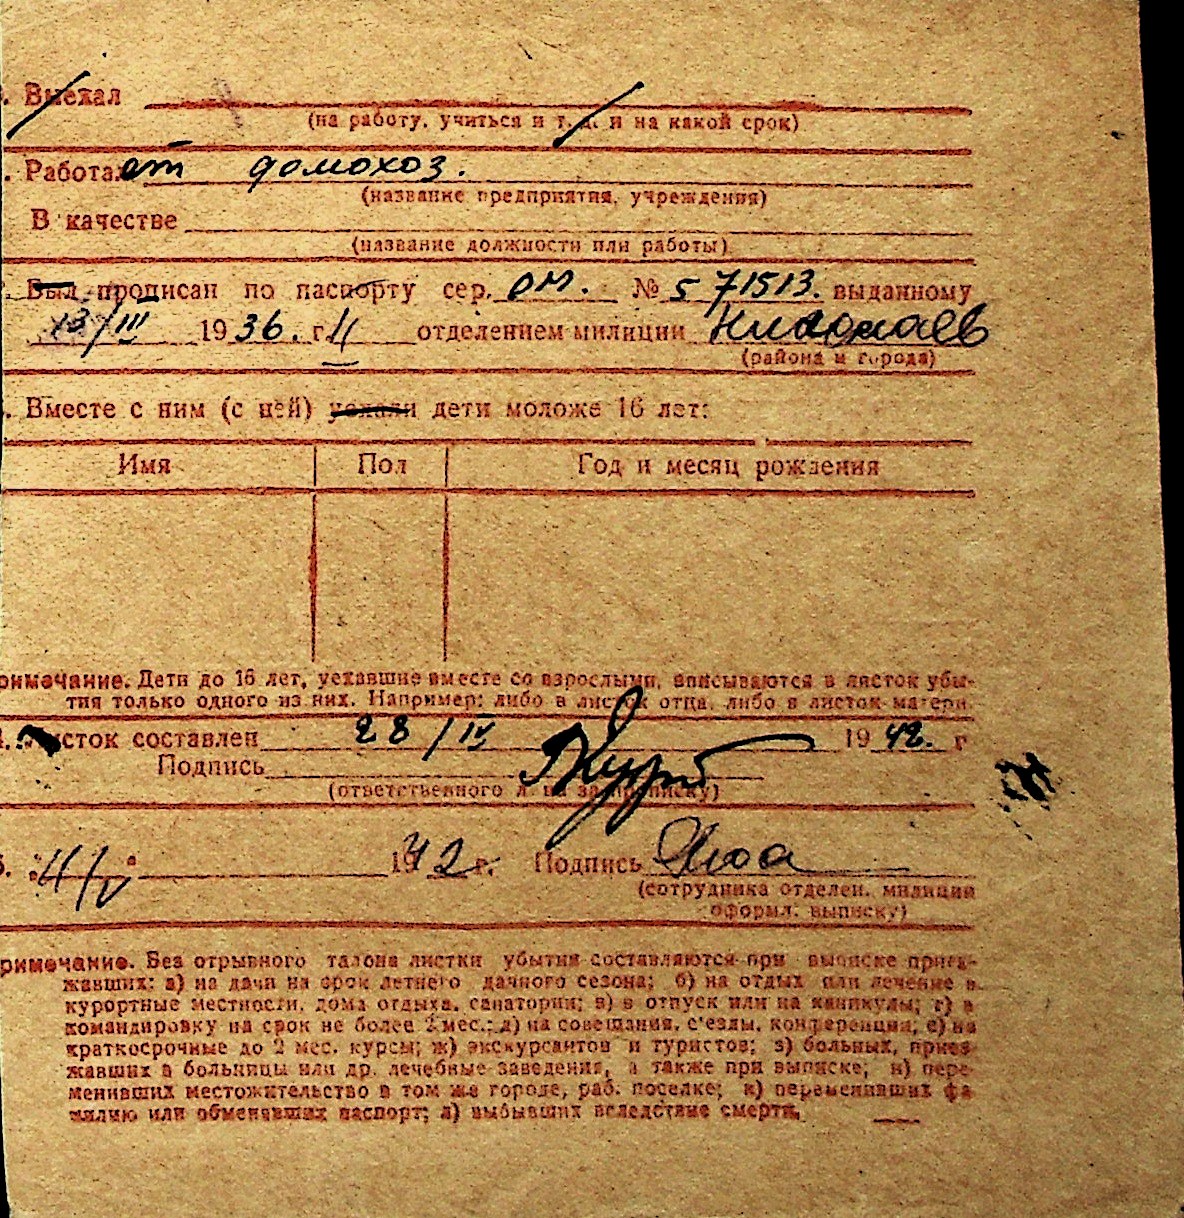 . Выехал
(на работу, учиться и т. д. и на какой срок)
. Работает домохоз.
(название предприятия, учреждения)
В качестве
(название должности или работы)
Был прописан по паспорту сер. ОМ. № 571513. выданному
13/III 1936. г. II отделением милиции Николаев
(района и города)
. Вместе с ним (с ней) уехали дети моложе 16 лет:
Имя Пол Год и месяц рождения
римечание. Дети до 16 лет, уехавшие вместе со взрослыми, вписываются в листок убы-
тия только одного из них. Например: либо в листок отца, либо в листок матери.
Листок составлен 28/IV 1942. г
Подпись
(ответственного л за прописку)
4/V 1942 г. Подпись
(сотрудника отделен. милиции
оформл. выписку)
римечание. Без отрывного талона листки убытия составляются при выписке приез-
жавших: а) на дачи на срок летнего дачного сезона; б) на отдых или лечение в
курортные местности, дома отдыха, санатории; в) в отпуск или на каникулы; г) в
командировку на срок не более 2 мес.; д) на совещания, с'езды, конференции; е) на
краткосрочные до 2 мес. курсы; ж) экскурсантов и туристов; з) больных, приез-
жавших в больницы или др. лечебные заведения, а также при выписке; и) пере-
менивших местожительство в том же городе, раб. поселке; к) переменивших фа
милию или обменявших паспорт; л) выбывших вследствие смерти.